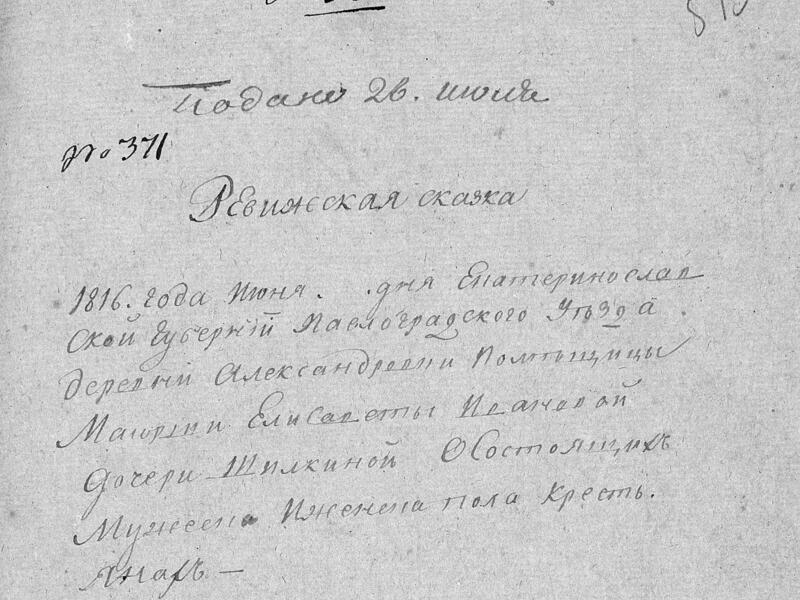 Подано 26. июня
№ 371
Ревижская сказка
1816. года Июня. дня Екатеринослав
ской губернїи Павлоградского Уѣзда
деревни Александровки Помѣщицы
Маиорши Елисаветы Ивановой
дочери Шилкиной О Состоящихъ
Мужеска Иженска пола кресть.
янахъ —